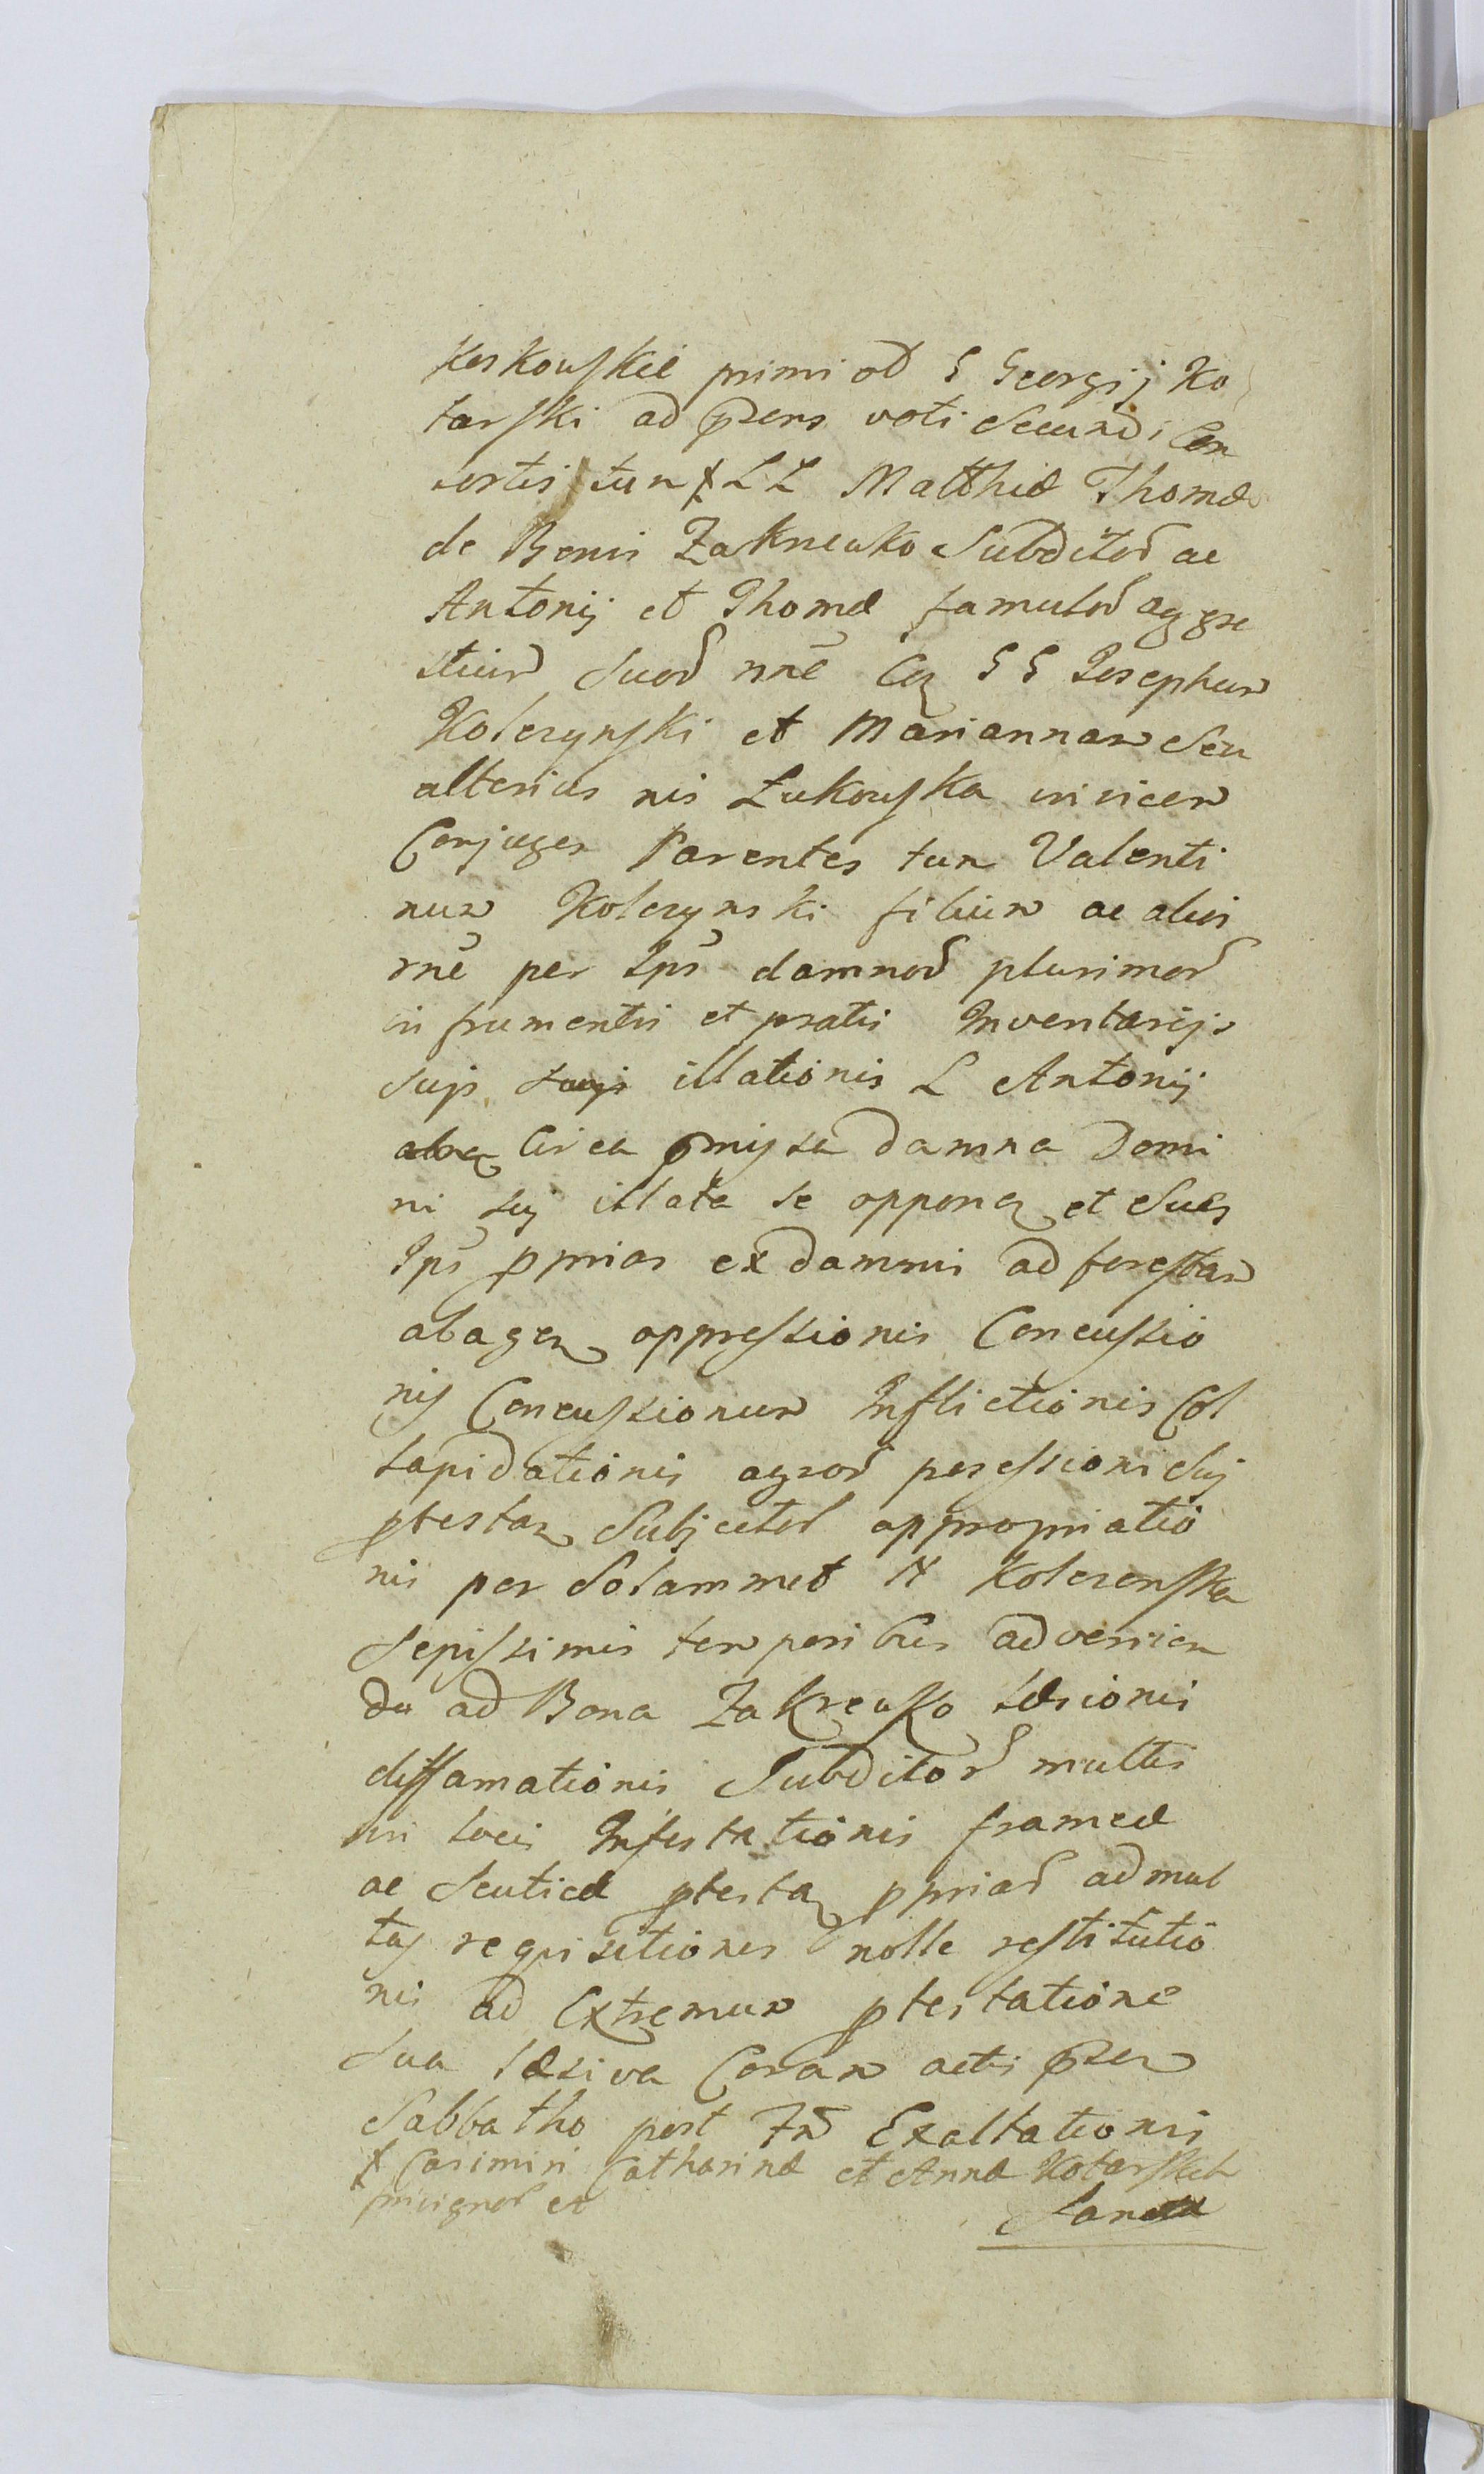 Koskowſkiæ primi ad G Georgij Ko
tarſki ad pꝛens voti Secundi Con
sortis tum ✗ LL Matthiæ Thomæ
de Bonis Zakrewko Subditoꝝ ac
Antonij et Thomæ famuloꝝ aggre
stium Suoꝝ nne Cꝛ GG Josephum
Kolczynſki et Mariannam Seu
alterius nis Łukowſka invicem
Conjuges Parentes tum Valenti
num Kolczynski filium ac alios
rne per Ips damnoꝝ plurimoꝝ
in frumentis et pratis Inventarijs
Sujs illationis L Antonij
Circa pmiſsa damna Domi
ni sui illata se opponꝝ et Sues
Ips pprias ex damnis ad foreſtam
abagen oppreſsionis Concuſsio
nis Concuſsionum Inflictionis Col
lapidationis agroꝝ poseſsioni Sui
ptestan Subjectoꝝ appropriatio
nis per Solammet N Kolczenſka
Sepiſsimis temporibus advenien
do ad Bona Zakrewko Læsionis
diffamationis Subditoꝝ multis
in locis Infestationis frameæ
ac Scuticæ ptestan ppriaꝝ ad mul
tas requisitiones nolle reſtitutio
nis ad Extremum ptestatione
Sua læsiva Coram actis pꝛen
Sabbatho post Fm Exaltationis
✗ Casimiri Catharinæ et Annæ Kotarſkich
privignoꝝ et
Sanctæ